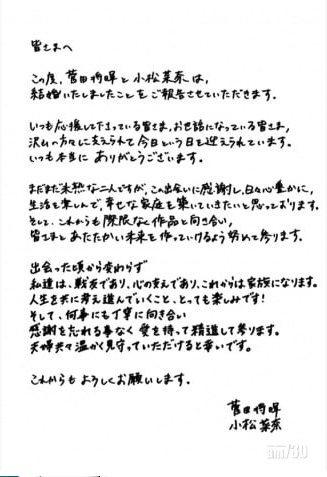 皆さまへ
この度、菅田将暉と小松菜奈は、
結婚いたしましたことをご報告させていただきます。
いつも応援して下さっている皆さま、お世話になっている皆さま、
沢山の方々に支えられて今日という日を迎えられています。
いつも本当に ありがとうございます。
まだまだ未熟な二人ですが、この出会いに感謝し、日々心豊かに、
生活を楽しんで、幸せな家庭を築いていきたいと思っております。
そして、これからも際限なく作品と向き合い、
皆さまとあたたかい未来を作っていけるよう努めて参ります。
出会った頃から変わらず
私達は、戦友であり、心の支えであり、これからは家族になります。
人生を共に考え進んでいくこと、とっても楽しみです!
そして、何事にも丁寧に向き合い
感謝を忘れる事なく愛を持って精進して参ります。
夫婦共々温かく見守っていただけると幸いです。
これからも よろしくお願いします。
菅田将暉
小松菜奈
am730